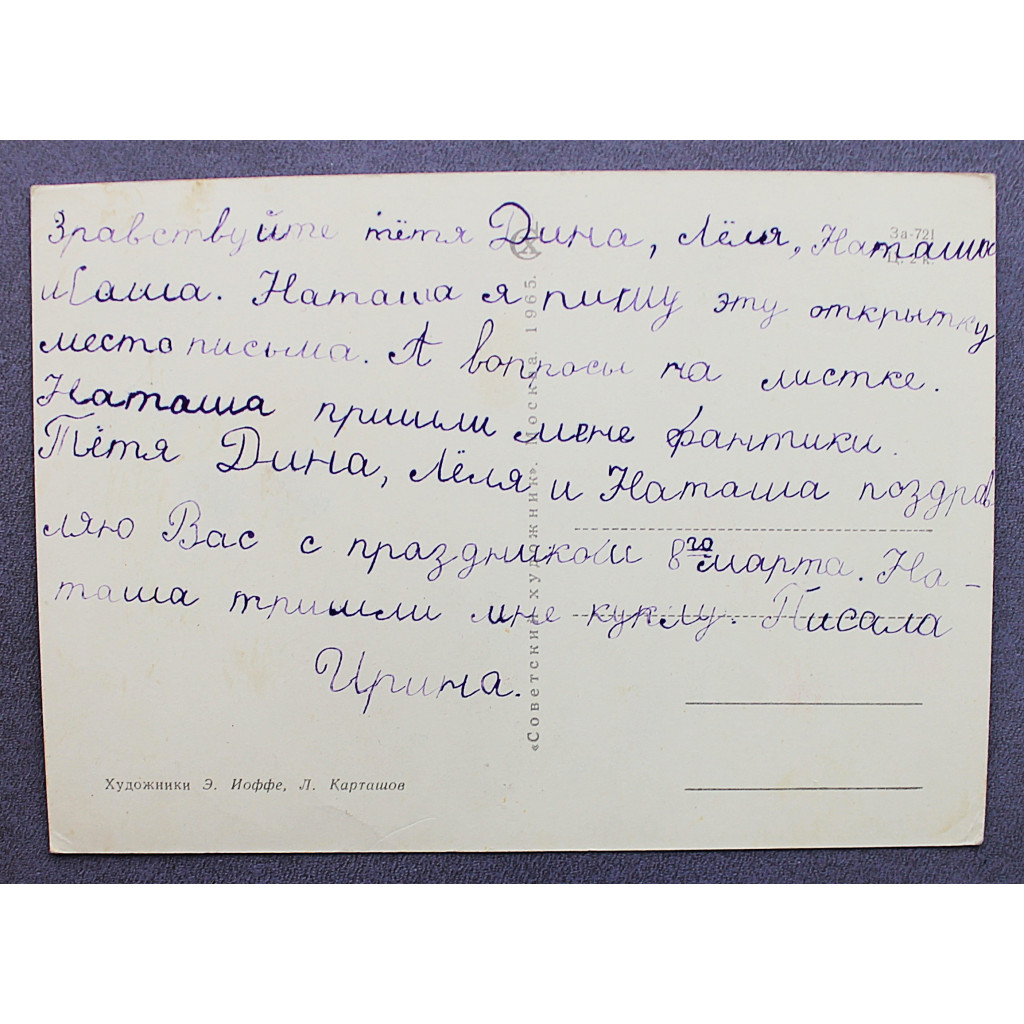 Здравствуйте тётя Дина, Лёля, Наташа
и Саша. Наташа я пишу эту открытку
место письма. А вопросы на листке.
Наташа пришли мене фантики.
Тётя Дина, Лёля и Наташа поздрав
ляю Вас с праздником 8го марта. На-
таша тришли мне куклу. Писала
Ирина.
За-721
Ц. 2 к.
«Советский художник». Москва. 1965.
Художники Э. Иоффе, Л. Карташов